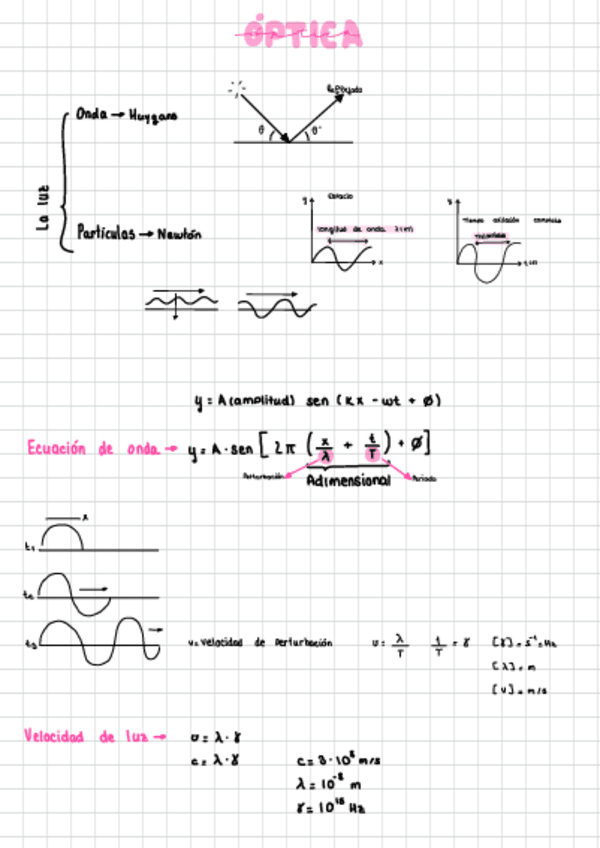 ÓPTICA
Onda → Huygens
Reflejado
θ θ'
La luz
Partículas → Newton
Espacio
longitud de onda λ(m)
x
Tiempo oscilación completa
y = A(amplitud) sen (kx - wt + ø)
Ecuación de onda → y = A · sen [ 2π ( x/λ + t/T ) + ø ]
Perturbación Adimensional Periodo
x
t₁
t₂
t₃
v = velocidad de perturbación v = λ/T 1/T = γ [γ] = s⁻¹ = Hz
[λ] = m
[v] = m/s
Velocidad de luz → v = λ · γ
c = λ · γ c = 3 · 10⁸ m/s
λ = 10⁻⁸ m
γ = 10¹⁶ Hz